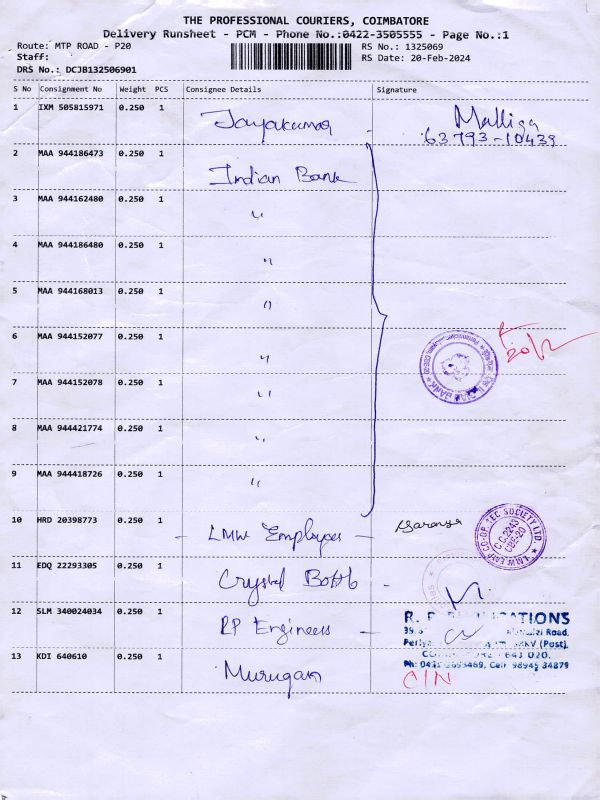 THE PROFESSIONAL COURIERS, COIMBATORE
Delivery Runsheet - PCM - Phone No.:0422-3505555 - Page No.:1
Route: MTP ROAD - P20
RS No.: 1325069
Staff:
RS Date: 20-Feb-2024
DRS No.: DCJB132506901
S No Consignment No Weight PCS Consignee Details Signature
1 IXM 505815971 0.250 1 Jayakumar - Malliga
63793-10439
2 MAA 944186473 0.250 1 Indian Bank
3 MAA 944162480 0.250 1 "
4 MAA 944186480 0.250 1 "
5 MAA 944168013 0.250 1 "
6 MAA 944152077 0.250 1 "
7 MAA 944152078 0.250 1 "
8 MAA 944421774 0.250 1 "
9 MAA 944418726 0.250 1 "
10 HRD 20398773 0.250 1 - LMW Employees - Saranya
LMW EMP CO-OP. TEC SOCIETY LTD.
C.C-2243
CBE-20
11 EDQ 22293305 0.250 1 Crystal -
12 SLM 340024034 0.250 1 RP Engineers -
13 KDI 640610 0.250 1 Murugan
R.
Road.
(Post).
641 020.
Ph: 2693469, Cell: 98945 34879
C/N